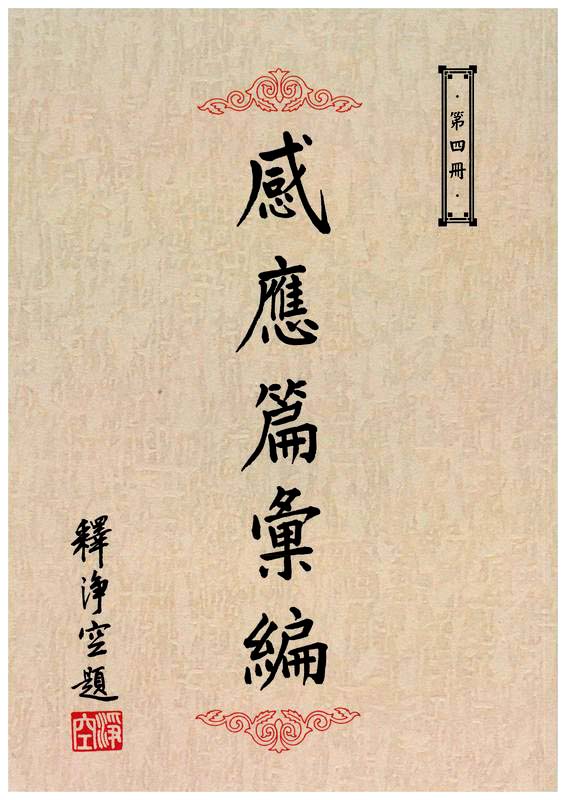 ·第四冊·
感應篇彙編
釋淨空題
淨空